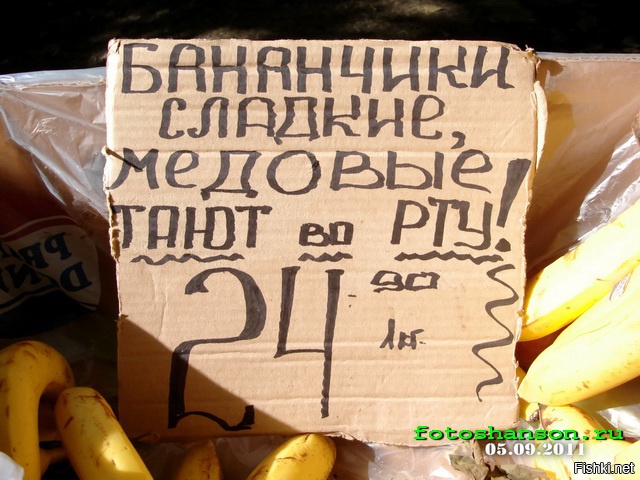 БАНАНЧИКИ
СЛАДКИЕ,
МЕДОВЫЕ
ТАЮТ ВО РТУ!
24 90
1кг.
fotoshanson.ru
05.09.2011
Fishki.net